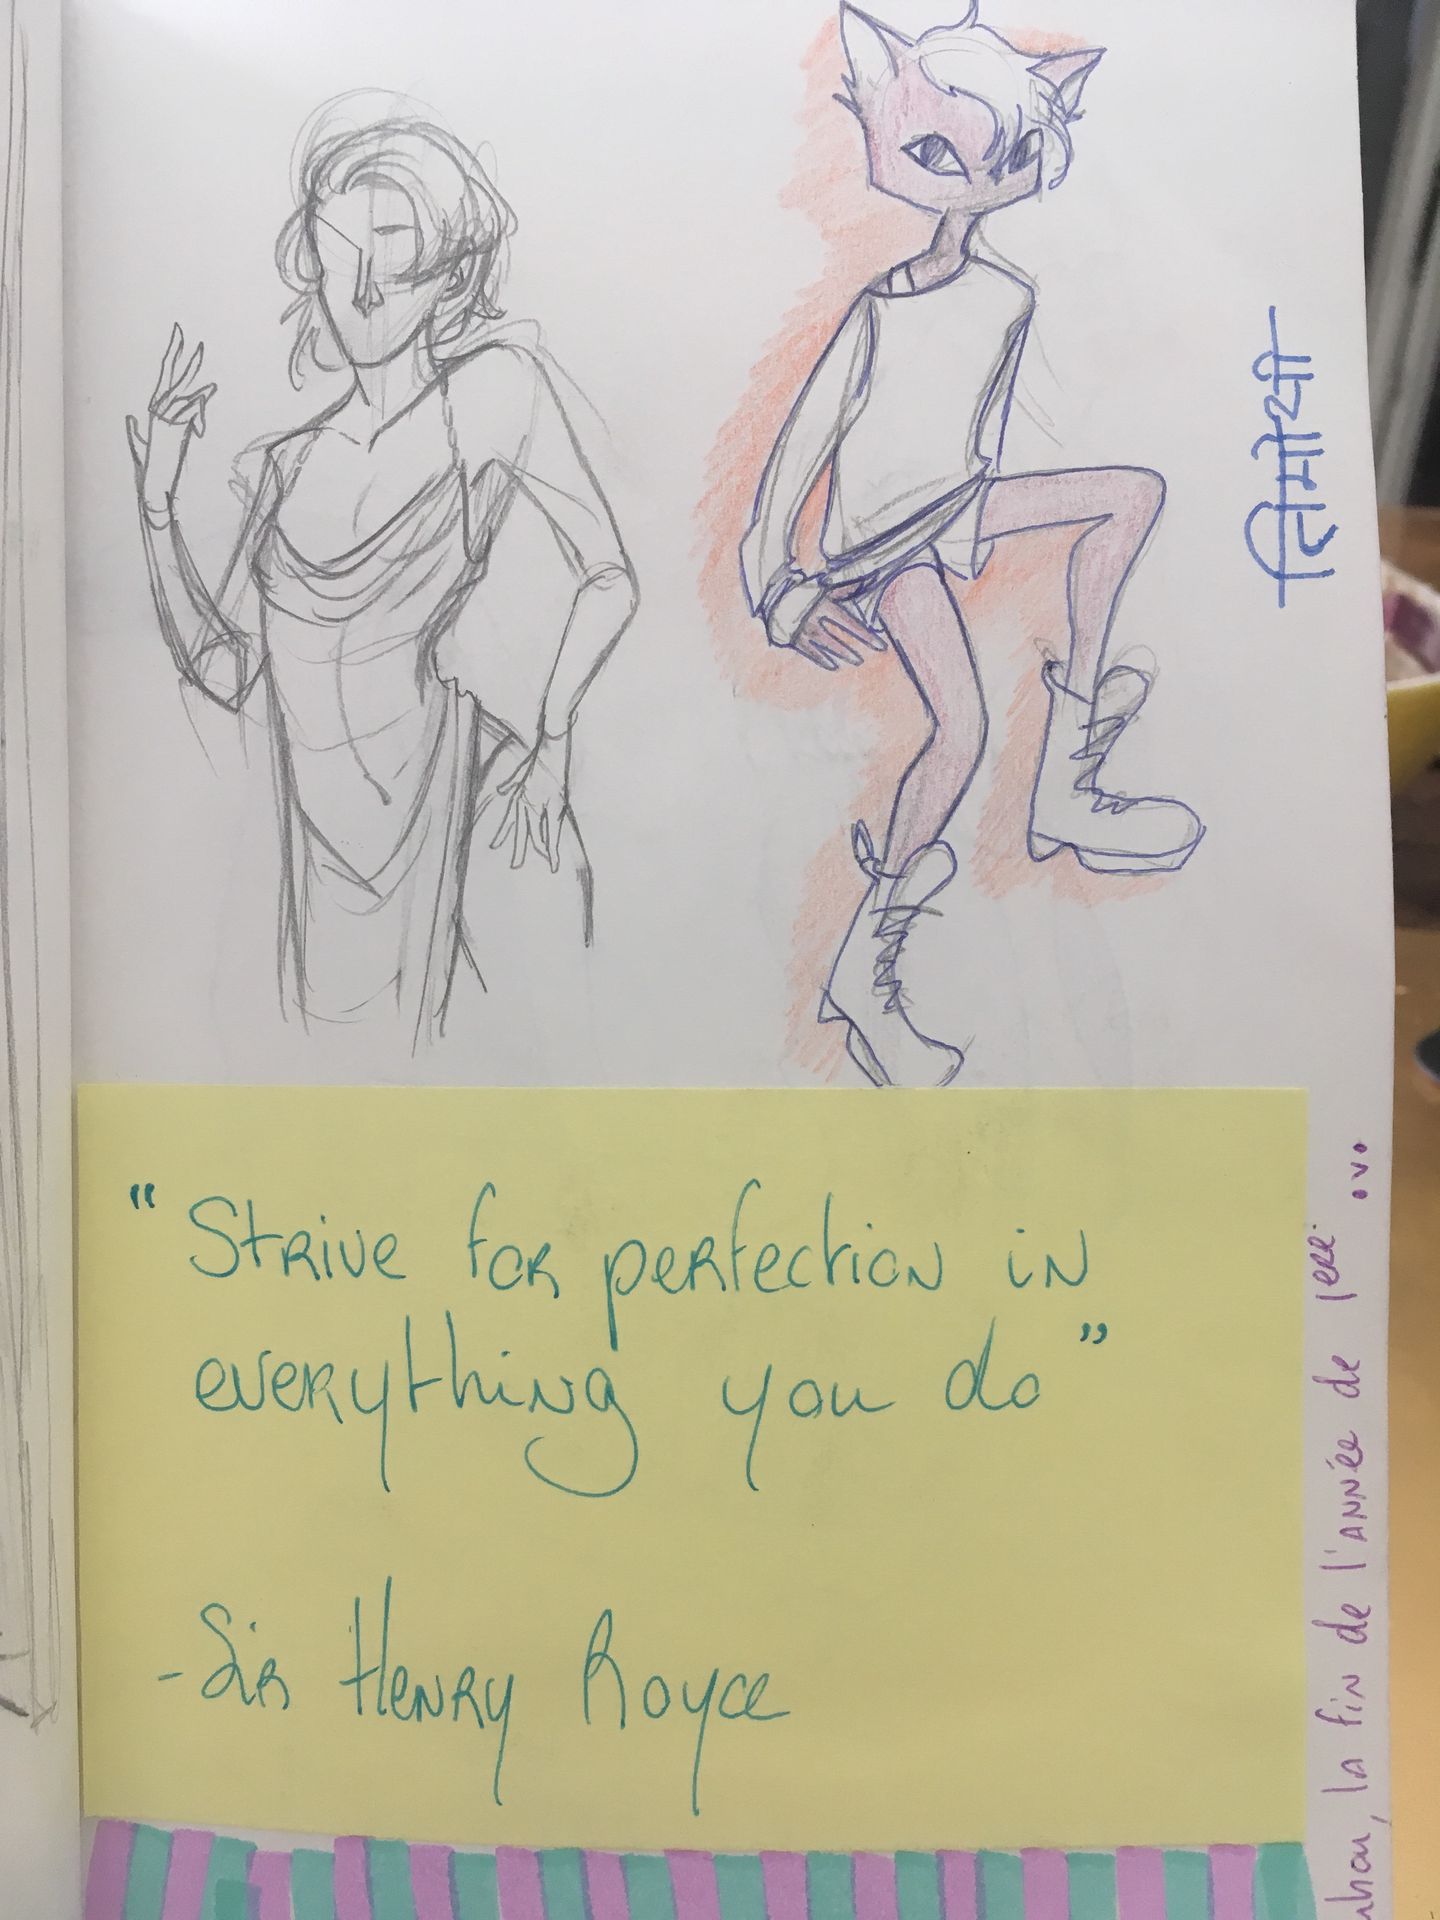 तिमोथी
"Strive for perfection in
everything you do"
-Sir Henry Royce
la fin de l'année de 1ère •v•